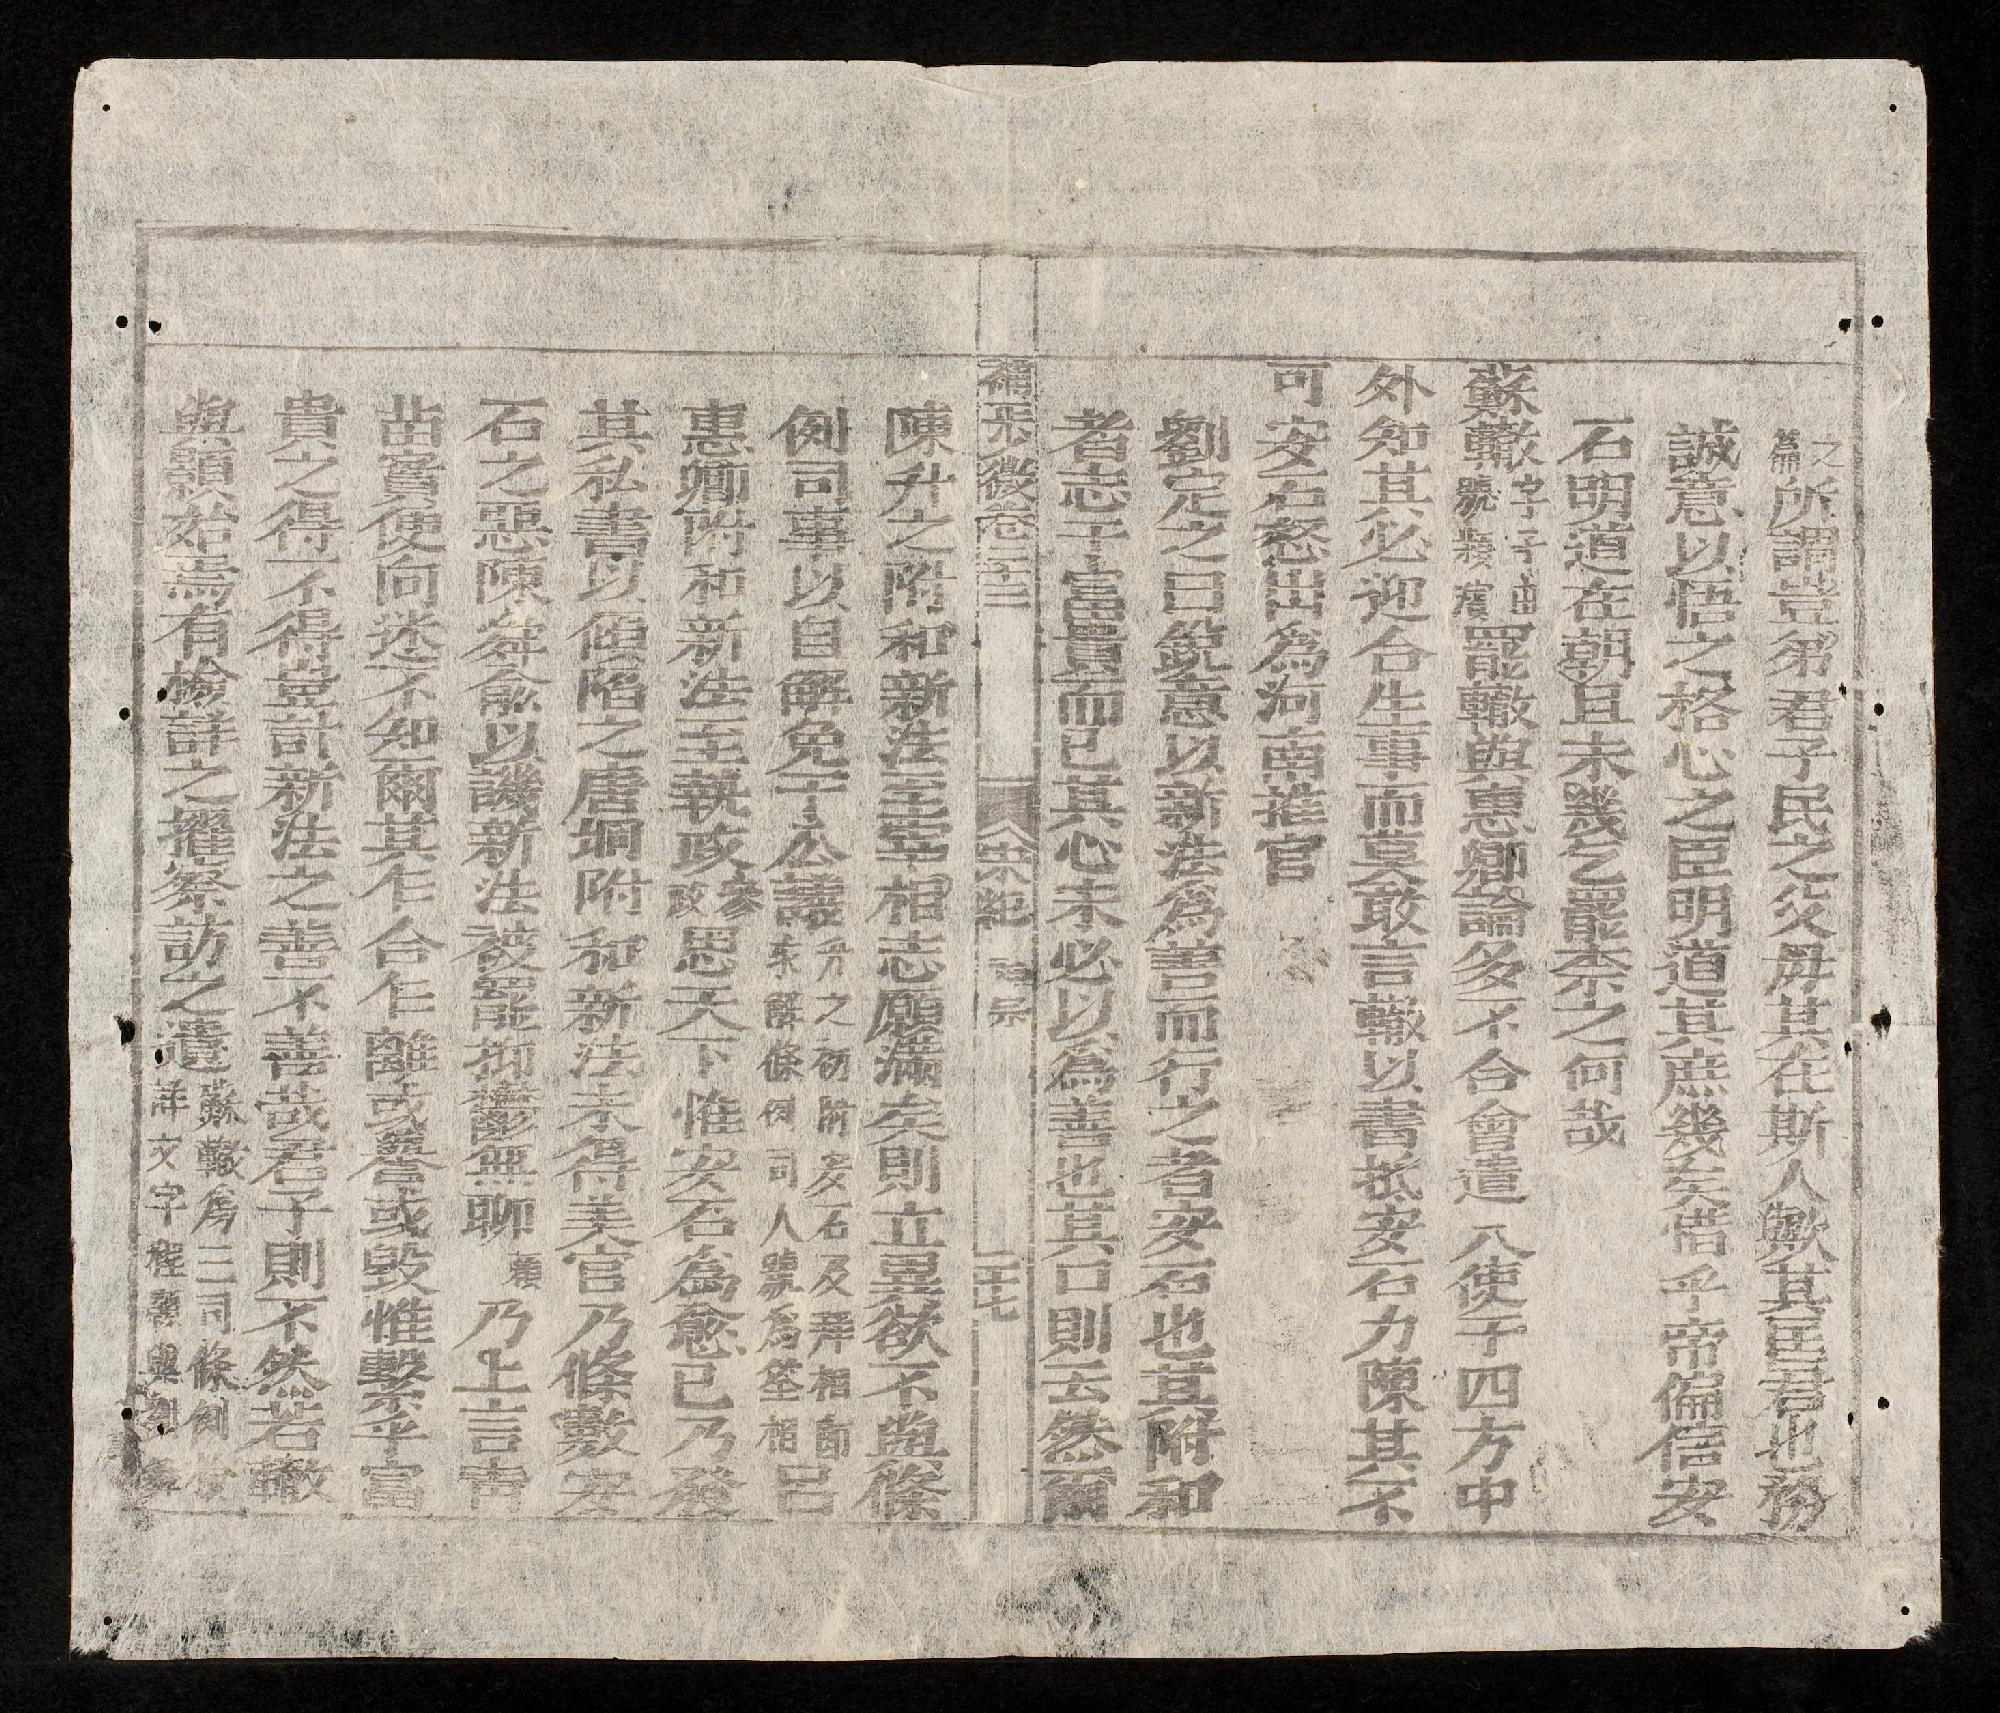 之篇所謂豈弟君子民之父毋其在斯人歟其臣君也務
誠意以悟之格心之臣明道其庶幾矣惜乎帝偏信安
石明道在朝且未幾乞罷柰之何哉
蘇轍字子由號潁濱罷轍與惠卿論多不合會遣八使于四方中
外知其必迎合生事而莫敢言轍以書抵安石力陳其不
可安石怒出為河南推官
劉定之曰銳意以新法為善而行之者安石也苴附和
者志于富貴而已其心未必以為善也其口則云然爾
補天微卷二十二
宋紀
神宗
二十七
陳升之附和新法至宰相志願滿矣則立異欲不與條
例司事以自解免于公議升之初附安石及拜相即求解條例司人號為筌相呂
惠卿附和新法至執政參政思天下惟安石為愈已乃發
其私書以傾陷之唐坰附和新法未得美官乃條數安
石之惡陳舜俞以譏新法被罷抑鬱無聊乃上言青
苗實便向迷不知爾其乍合乍離或譽或毀惟繫乎富
貴之得不得豈計新法之善不善哉君子則不然若轍
與顥始焉有檢詳之擢察訪之遣蘇轍為三司條例檢詳文字程顥與劉